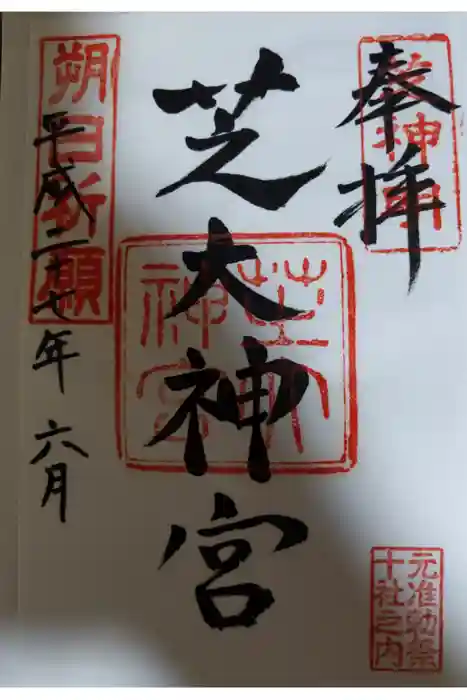 奉拝
神明
芝大神宮
芝大
神宮
朔日祈願
平成二十七年 六月
元准勅祭
十社之内